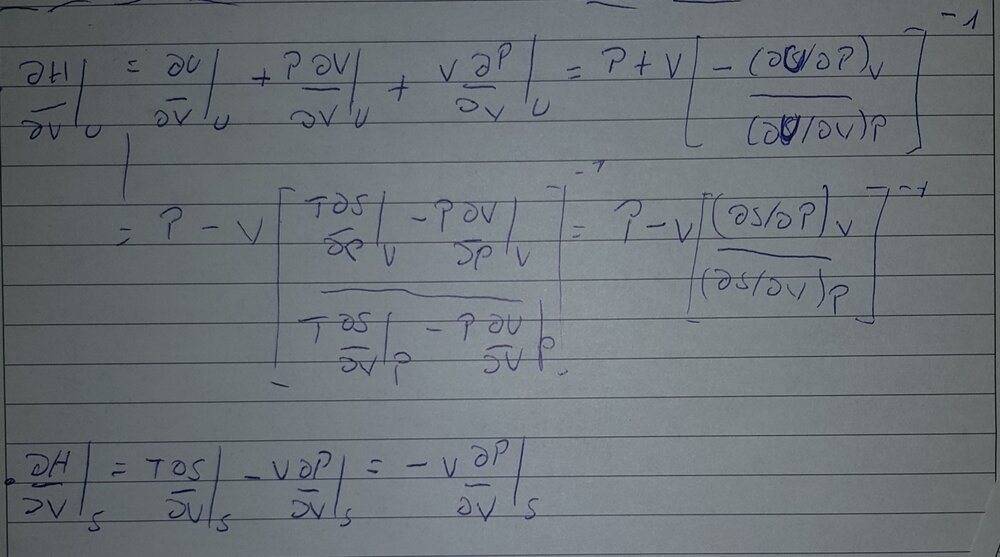 ∂H/∂V|_U = ∂U/∂V|_U + P ∂V/∂V|_U + V ∂P/∂V|_U = P + V [ - (∂U/∂P)_V / (∂U/∂V)_P ]^{-1}
= P - V [ (T ∂S/∂P|_V - P ∂V/∂P|_V) / (T ∂S/∂V|_P - P ∂V/∂V|_P) ]^{-1} = P - V [ (∂S/∂P)_V / (∂S/∂V)_P ]^{-1}
∂H/∂V|_S = T ∂S/∂V|_S - V ∂P/∂V|_S = - V ∂P/∂V|_S